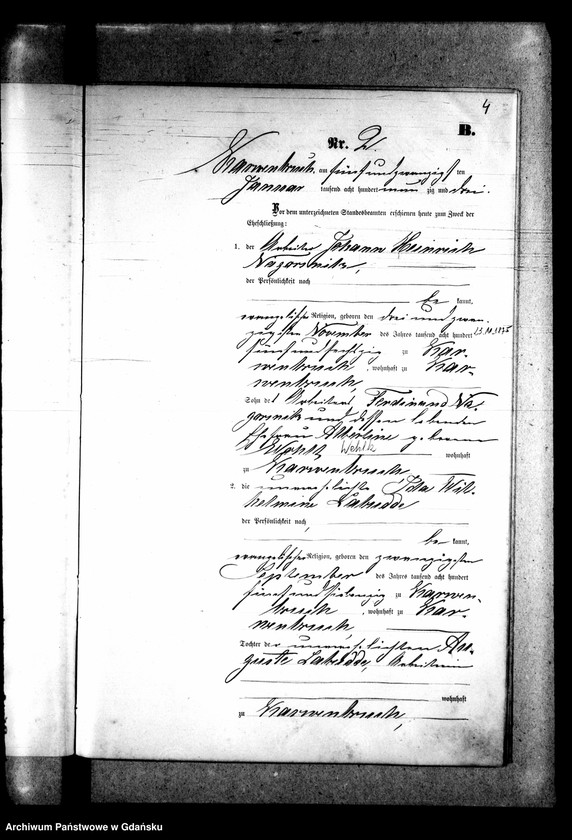 4
B.
Nr. 2.
Karwenbruch, am fünf und zwanzigsten
Januar tausend acht hundert neunzig und drei.
Vor dem unterzeichneten Standesbeamten erschienen heute zum Zweck der
Eheschließung:
1. der Arbeiter Johann Heinrich
der Persönlichkeit nach
be kannt,
evangelischer Religion, geboren den drei und zwan-
zigsten November des Jahres tausend acht hundert
fünf und sechzig zu Kar-
wenbruch, wohnhaft zu Kar-
wenbruch,
Sohn des Arbeiters Ferdinand Na-
und dessen lebenden
Ehefrau Albertine geborenen
wohnhaft
zu Karwenbruch,
2. die unverehelichte Ida Wil-
helmine Labudde
der Persönlichkeit nach,
be kannt,
evangelischer Religion, geboren den zwanzigsten
September des Jahres tausend acht hundert
fünf und siebenzig zu Karwen-
bruch, wohnhaft zu Kar-
wenbruch,
Tochter der unverehelichten Au-
guste Labudde, Arbeiterin
wohnhaft
zu Karwenbruch,
Archiwum Państwowe w Gdańsku